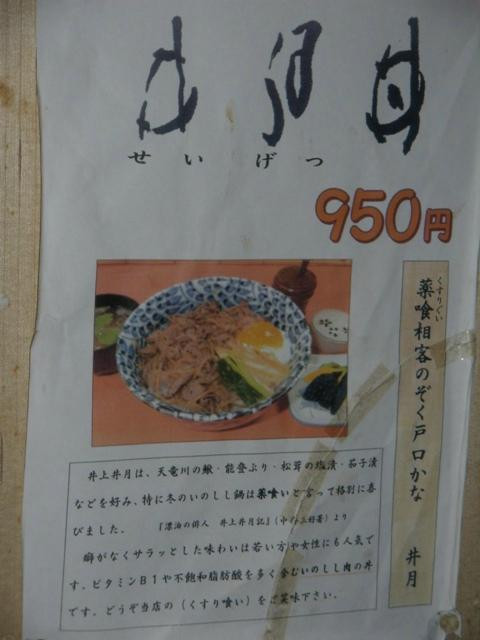 井月丼
せいげつ
950円
くすりぐい
薬喰相客のぞく戸口かな 井月
井上井月は、天竜川の鰍・能登ぶり・松茸の塩漬・茄子漬
などを好み、特に冬のいのしし鍋は薬喰いと言って格別に喜
びました。 『漂泊の俳人 井上井月記』(中井三好著)より
癖がなくサラッとした味わいは若い方や女性にも人気で
す。ビタミンB1や不飽和脂肪酸を多く含むいのしし肉の丼
です。どうぞ当店の(くすり喰い)をご笑味下さい。